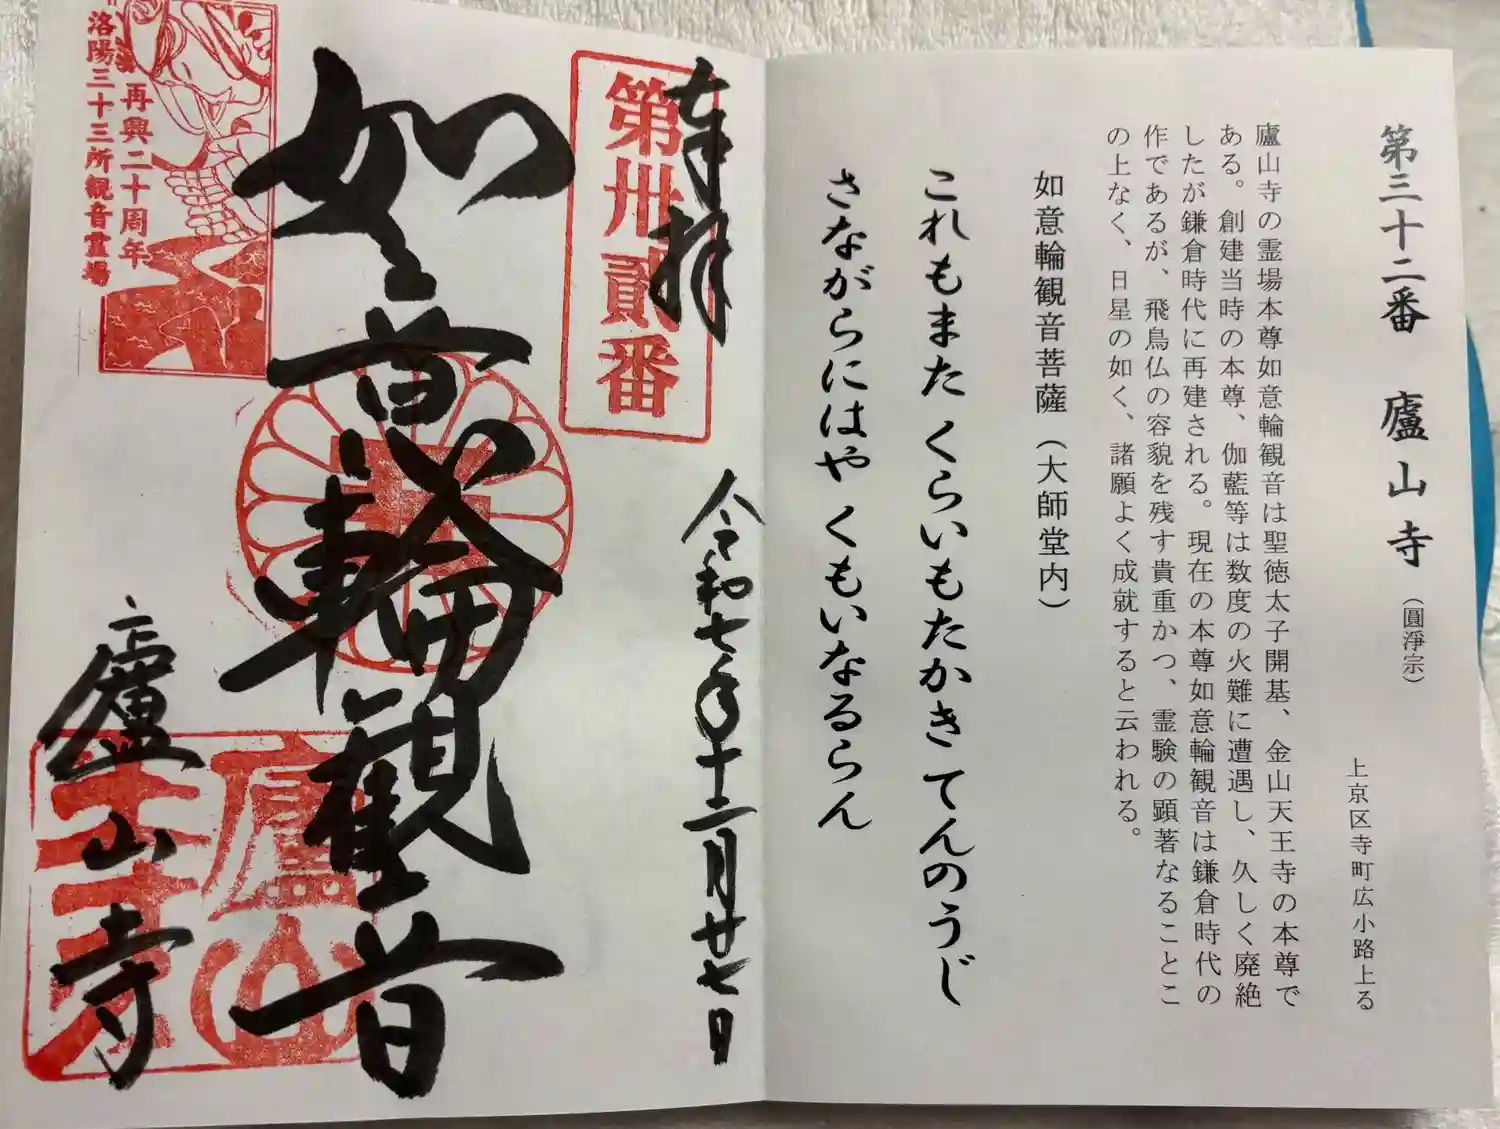 第三十二番　廬山寺（圓淨宗）
上京区寺町広小路上る
廬山寺の霊場本尊如意輪観音は聖徳太子開基、金山天王寺の本尊で
ある。創建当時の本尊、伽藍等は数度の火難に遭遇し、久しく廃絶
したが鎌倉時代に再建される。現在の本尊如意輪観音は鎌倉時代の
作であるが、飛鳥仏の容貌を残す貴重かつ、霊験の顕著なることこ
の上なく、日星の如く、諸願よく成就すると云われる。
如意輪観音菩薩（大師堂内）
これもまた くらいもたかき てんのうじ
さながらにはや くもいなるらん
奉拝
第卅貳番
令和七年十二月廿七日
如意輪観音
再興二十周年
洛陽三十三所観音霊場
廬山寺
廬山
寺